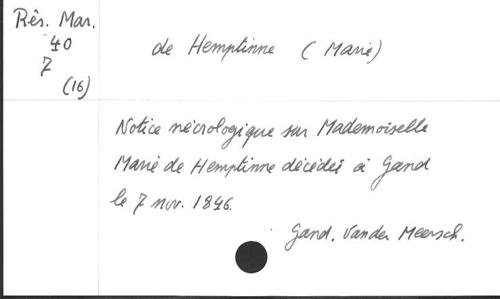 Rês. Mar.
40
7
(16)
de Hemptinne (Marie)
Notice nécrologique sur Mademoiselle
Marie de Hemptinne décédée à Gand
le 7 nov. 1846.
Gand. Vander Meersch.